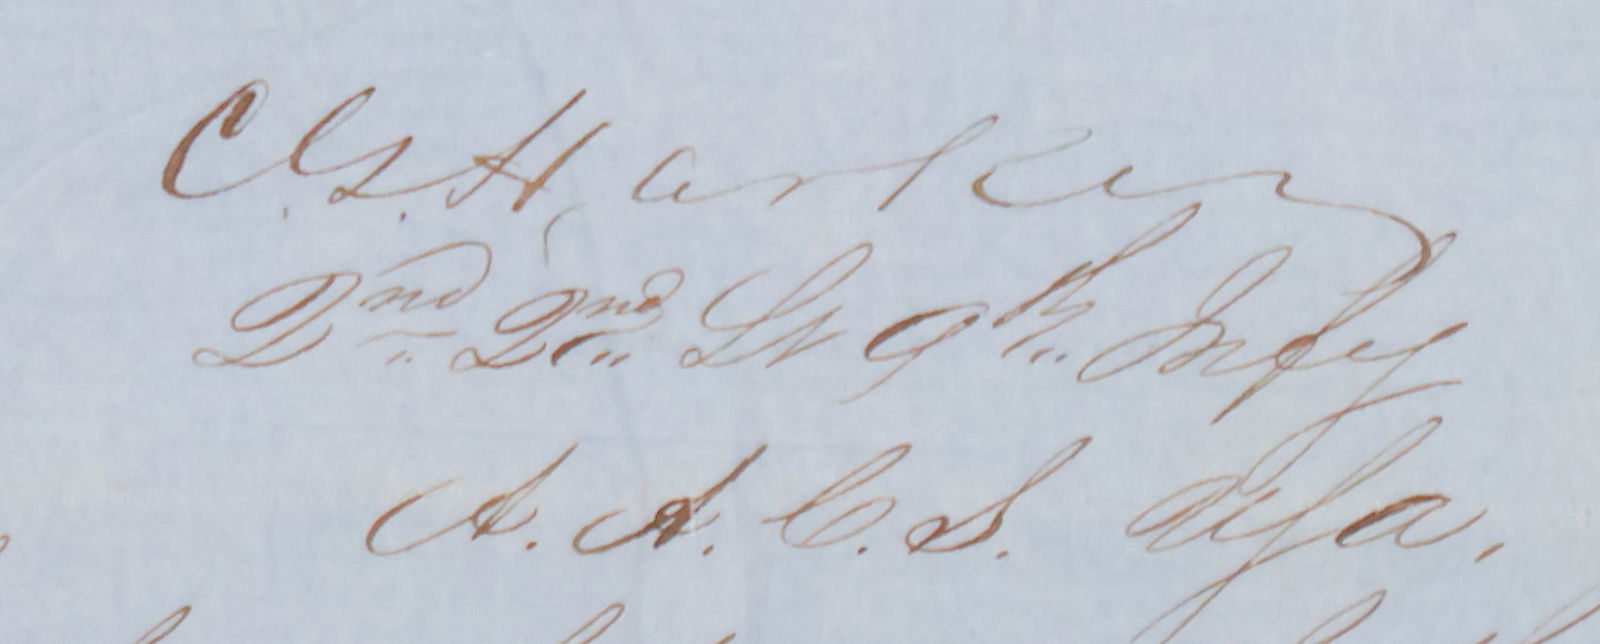 C. G. Harker
2nd 2nd Lt 9th Infy
A. A. C. S. USA.